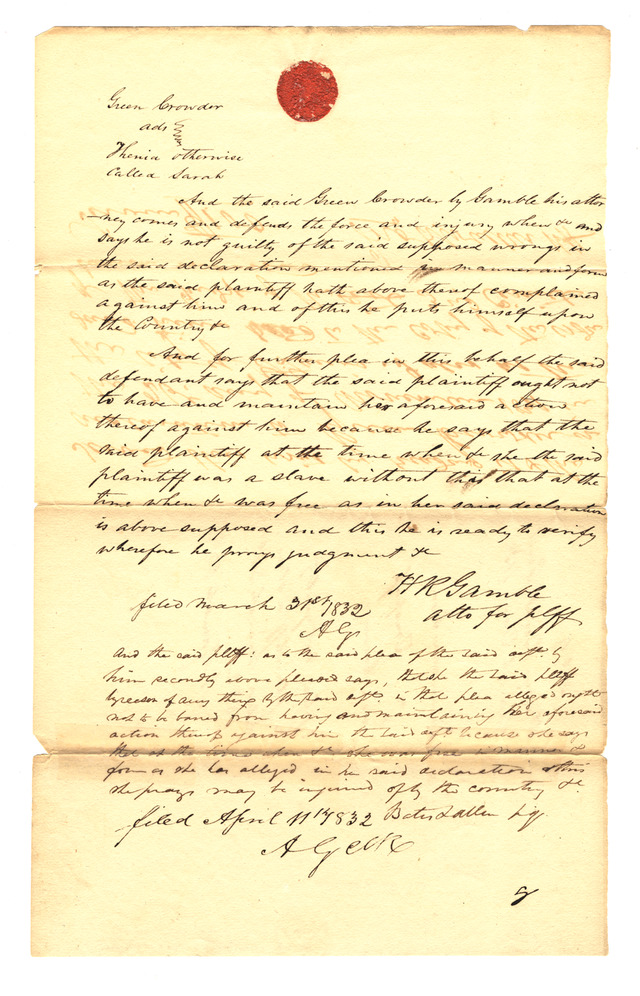 Green Crowder
ads
Thenia otherwise
Called Sarah
And the said Green Crowder by Gamble his attor
-ney comes and defends the force and injury when &c and
says he is not guilty of the said supposed wrongs in
the said declaration mentioned in manner and form
as the said plaintiff hath above thereof complained
against him and of this he puts himself upon
the Country &c
And for further plea in this behalf the said
defendant says that the said plaintiff ought not
to have and maintain her aforesaid action
thereof against him because he says that the
said plaintiff at the time when &c she the said
plaintiff was a slave without this that at the
time when &c was free as in her said declaration
is above supposed and this he is ready to verify
wherefore he prays judgment &c
H R Gamble
atto for plff
filed March 31st 1832
A G
And the said plff: as to the said plea of the said deft. by
him secondly above pleaded says, that she the said plff
by reason of any thing by the said deft. in that plea alleged ought
not to be barred from having and maintaining her aforesaid
action thereof against him the said deft because she says
that at the time when &c she was free in manner &
form as she has alleged in her said declaration & this
she prays may be inquired of by the country &c
filed April 11th 1832 Bates & Allen
A G clk